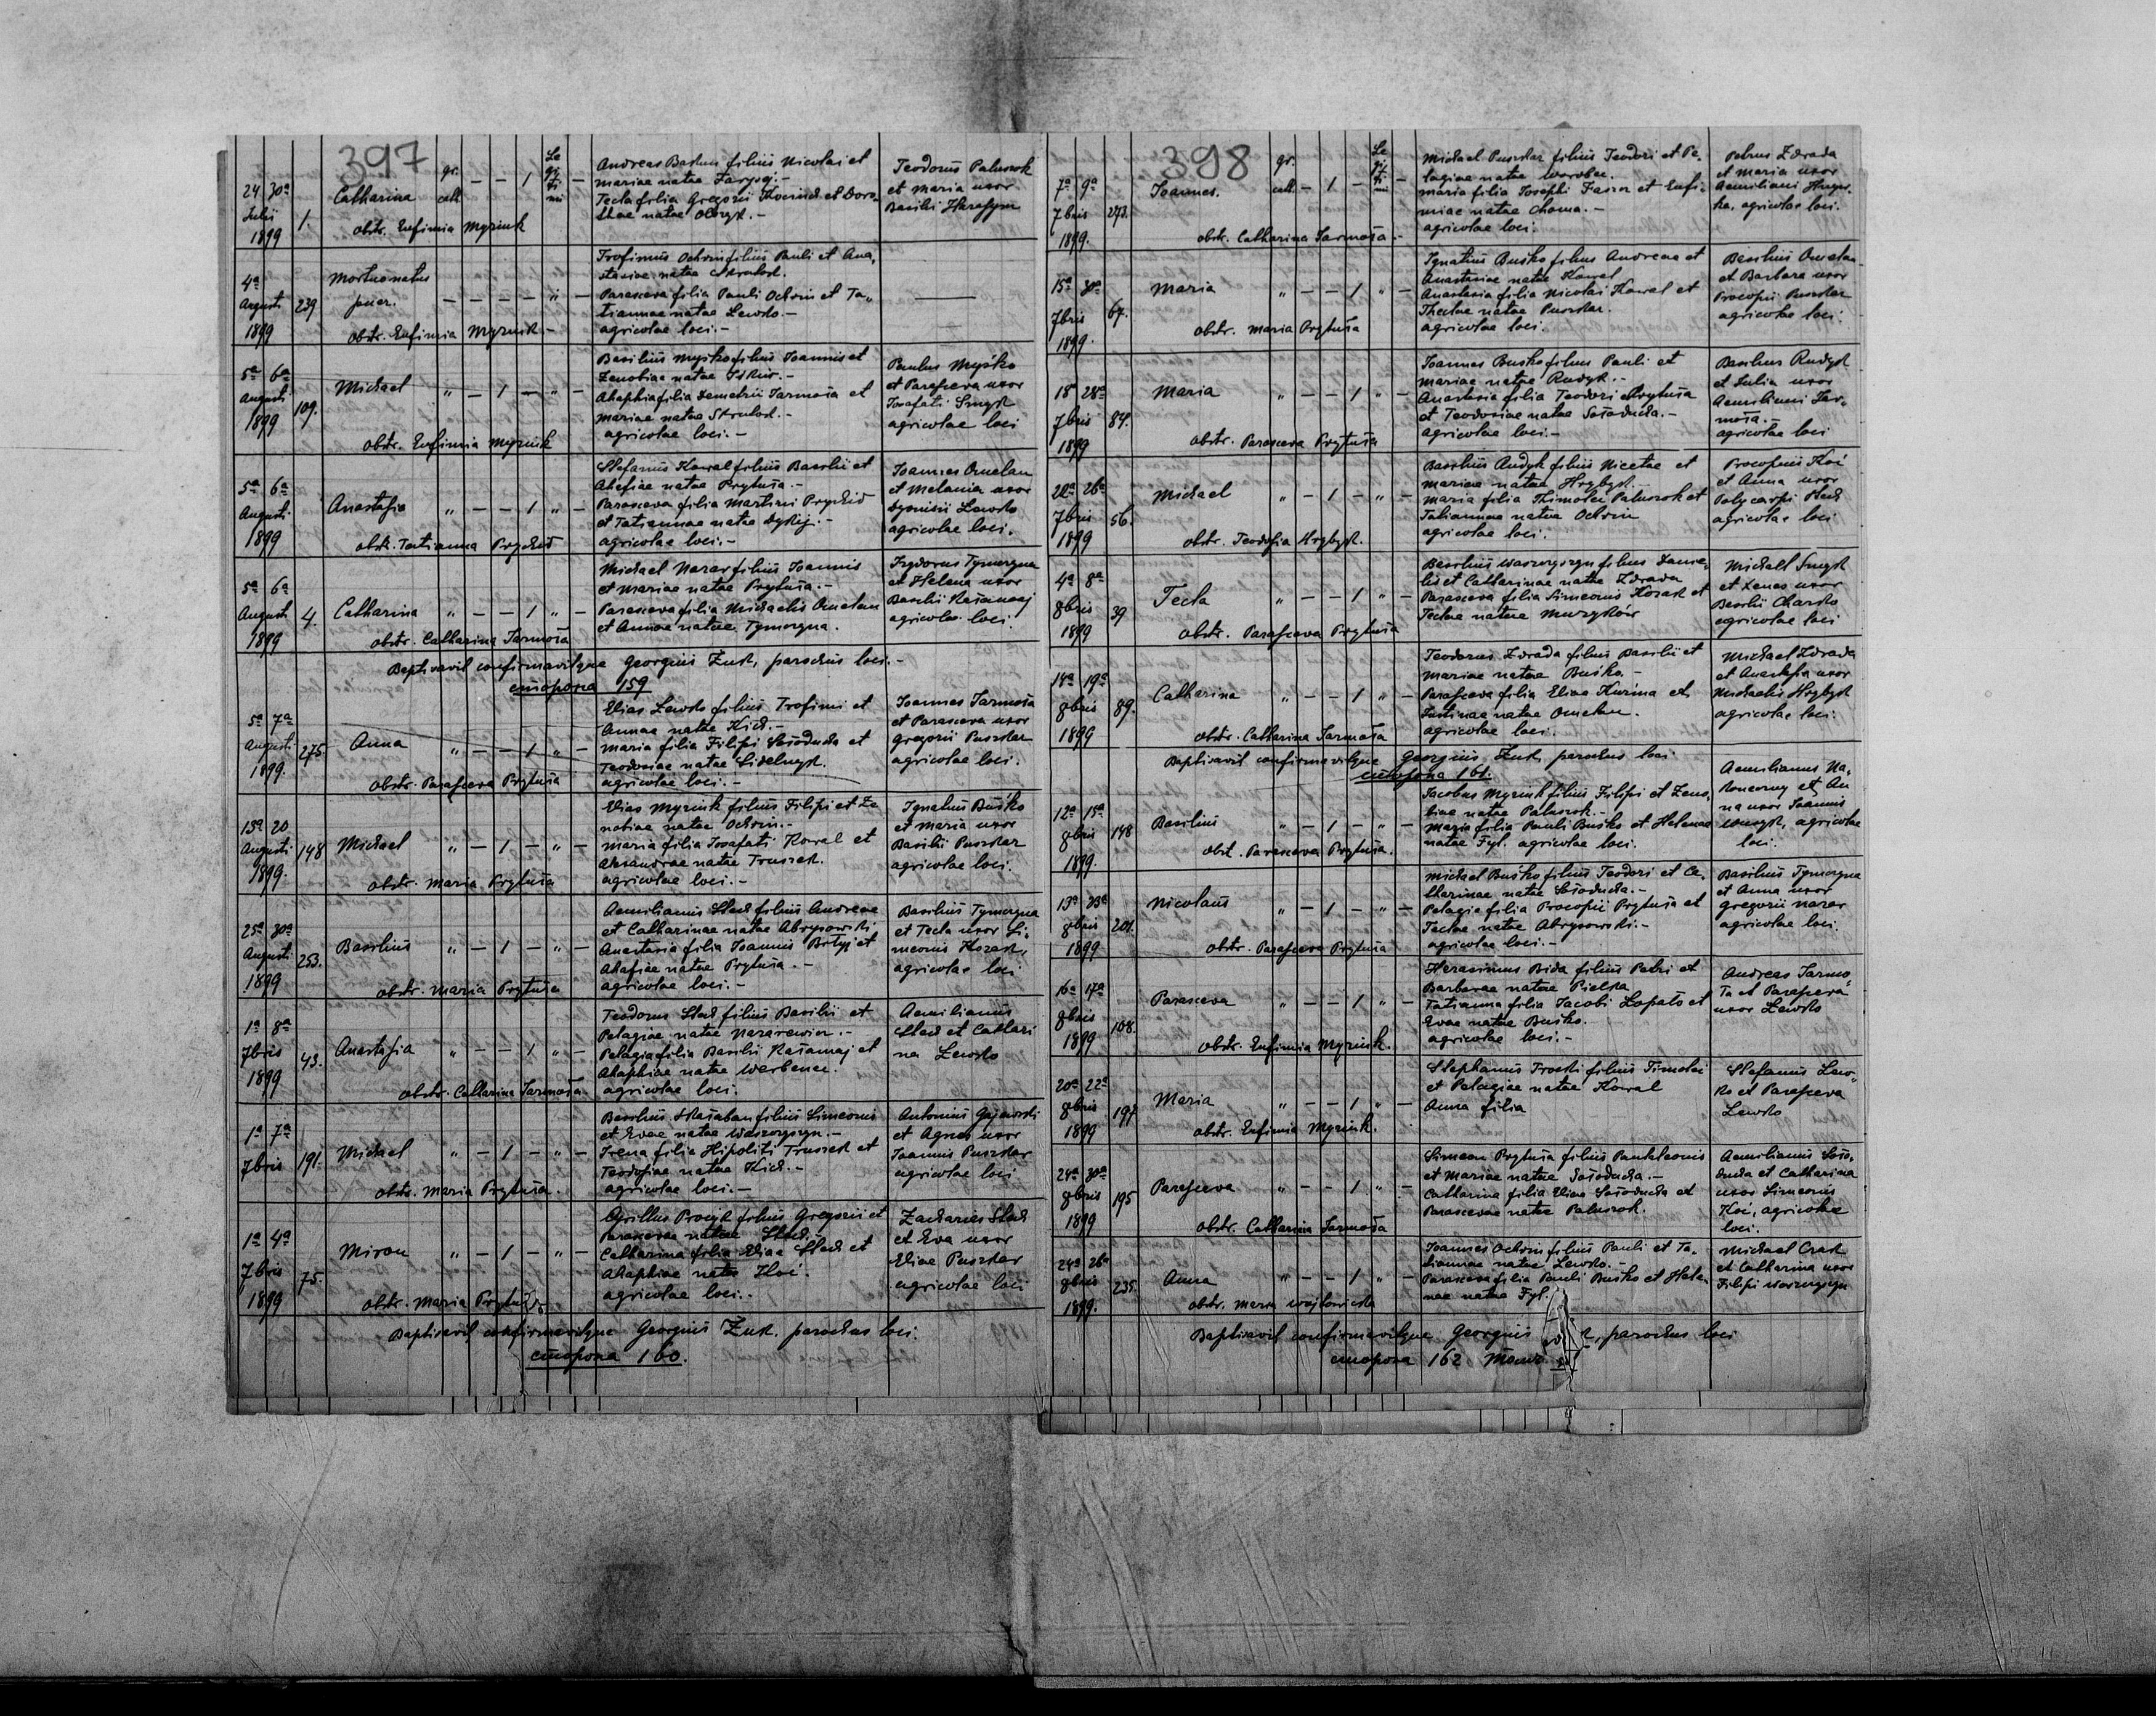 397
24 30a
Julii
1899
1.
Catharina
gr.
cath
– – 1
Le
gi
ti
mi
–
obstr. Eufimia Myrink
Andreas Baskus filius Nicolai et
Mariae natae
Tecla filia Gregorii et Doro-
theae natae
Teodorus Paluszok
et Maria uxor
Basilii Harasym
4a
Augusti
1899
239
Mortuonatus
puer.
– – – – " –
obstr. Eufimia Myrink –
Trofimus Ochrin filius Pauli et Ana,
staciae natae
Parasceva filia Pauli Ochrin et Ta„
tiannae natae Lewko. –
agricolae loci. –
5a 6a
Augusti
1899
109.
Michael
" – 1 – " –
obstr. Eufimia Myrink
Basilius Myśko filius Joannis et
Zenobiae natae
Ahaphia filia Demetrii Jarmoła et
Mariae natae
agricolae loci. –
Paulus Myśko
et Parasceva uxor
Josafati Smyk
agricolae loci
5a 6a
Augusti
1899
Anastasia
" – – 1 " –
obstr. Tatianna Prychid
Stefanus Kowal filius Basilii et
Ahafiae natae Prytuła. –
Parasceva filia Martini Prychid
et Tatiannae natae Dykij. –
agricolae loci. –
Joannes Omelan
et Melania uxor
Dyonisii Lewko
agricolae loci.
5a 6a
Augusti
1899
4.
Catharina
" – – 1 " –
obstr. Catharina Jarmoła
Michael Nazar filius Joannis
et Mariae natae Prytuła. –
Parasceva filia Michaelis Omelan
et Annae natae Tymczyna.
Izydorus Tymczyna
et Helena uxor
Basilii Kałamaj
agricolae loci.
Baptisavit confirmavitque Georgius Żuk, parochus loci. –
сторона 159
5a 7a
Augusti
1899.
275.
Anna
" – – 1 " –
obstr. Parasceva Prytuła
Elias Lewko filius Trofimi et
Annae natae Kich. –
Maria filia Filipi Sołoducha et
Teodosiae natae Sidelnyk.
agricolae loci. –
Joannes Jarmoła
et Parasceva uxor
Gregorii Puszkar
agricolae loci.
13a 20
Augusti
1899.
148
Michael
" – 1 – " –
obstr. Maria Prytuła
Elias Myrink filius Filipi et Ze
nobiae natae Ochrin. –
Maria filia Josafati Kowal et
Alexandrae natae Truszek.
agricolae loci. –
Ignatius Buśko
et Maria uxor
Basilii Puszkar
agricolae loci.
25a 30a
Augusti
1899
253.
Basilius
" – 1 – " –
obstr. Maria Prytuła
Aemilianus Stach filius Andreae
et Catharinae natae Abrysowski,
Anastasia filia Joannis et
Ahafiae natae Prytuła. –
agricolae loci. –
Basilius Tymczyna
et Tecla uxor Si-
meonis Kozak,
agricolae loci
1a 8a
7bris
1899
43.
Anastasia
" – – 1 " –
obstr. Catharina Jarmoła
Teodorus Stach filius Basilii et
Pelagiae natae Nazarewicz. –
Pelagia filia Basilii Kałamaj et
Ahaphiae natae Werbenec.
agricolae loci.
Aemilianus
Stach et Cathari
na Lewko
1a 7a
7bris
191.
Michael
" – 1 – " –
obstr. Maria Prytuła.
Basilius Skałaban filius Simeonis
et Evae natae Waszczyszyn. –
Irena filia Hipoliti Truszek et
Teodosiae natae Kich. –
agricolae loci. –
Antonius Gajewski
et Agnes uxor
Joannis Puszkar
agricolae loci
1a 4a
7bris
1899
75.
Miron
" – 1 – " –
obstr. Maria Prytuła
Cyrillus Procyk filius Gregorii et
Parascevae natae Stach. –
Catharina filia Eliae Stach et
Ahaphiae natae Koć.
agricolae loci. –
Zacharias Stach
et Eva uxor
Eliae Puszkar
agricolae loci
Baptisavit confirmavitque Georgius Żuk. parochus loci.
сторона 160.
398
7a 9a
7bris
1899.
273.
Joannes.
gr.
cath. – 1 –
Le
gi
ti
mi
–
obstr. Catharina Jarmoła –
Michael Puszkar filius Teodori et Pe-
lagiae natae Worobec.
Maria filia Josephi et Eufi-
miae natae Choma. –
agricolae loci.
Petrus Zdrada
et Maria uxor
Aemiliani
agricolae loci.
15a 30a
7bris
1899.
67.
Maria
" – – 1 " –
obstr. Maria Prytuła
Ignatius Buśko filius Andreae et
Anastasiae natae Kowal
Anastasia filia Nicolai Kowal et
Theclae natae Puszkar.
agricolae loci.
Basilius Omelan
et Barbara uxor
Procopii Puszkar
agricolae loci.
18a 28a
7bris
1899
84.
Maria
" – – 1 " –
obstr. Parasceva Prytuła
Joannes Buśko filius Pauli et
Mariae natae Rudyk. –
Anastasia filia Teodori Prytuła
et Teodosiae natae Sołoducha. –
agricolae loci. –
Basilius Rudyk
et Julia uxor
Aemiliani Jar-
moła. –
agricolae loci
20a 26a
7bris
1899
56.
Michael
" – 1 – " –
obstr. Teodosia Hrybyk.
Basilius Rudyk filius Nicetae et
Mariae natae Hrybyk. –
Maria filia Thimotei Paluszok et
Tatiannae natae Ochrin
agricolae loci.
Procopius Koć
et Anna uxor
Polycarpi Stach
agricolae loci
4a 8a
8bris
1899
39
Tecla
" – – 1 " –
obstr. Parasceva Prytuła
Basilius Waszczyszyn filius Danie-
lis et Catharinae natae Zdrada
Parasceva filia Simeonis Kozak et
Teclae natae Muzyków
Michael Smyk
et Xenia uxor
Basilii Charko
agricolae loci
14a 19a
8bris
1899
89.
Catharina
" – – 1 " –
obstr. Catharina Jarmoła
Teodorus Zdrada filius Basilii et
Mariae natae Buśko. –
Parasceva filia Eliae Kuzma et
Justinae natae Omelan.
agricolae loci.
Michael Zdrada
et Anastasia uxor
Michaelis Hrybyk
agricolae loci.
Baptisavit confirmavitque Georgius Żuk, parochus loci
сторона 161.
12a 15a
8bris
1899.
148
Basilius
" – 1 – " –
obst. Parasceva Prytuła.
Jacobus Myrink filius Filipi et Zeno,
biae natae Paluszok. –
Maria filia Pauli Buśko et Helenae
natae Fyl. agricolae loci.
Aemilianus Na,
koneczny et An
na uxor Joannis
agricolae
loci.
13a 23a
8bris
1899
201.
Nicolaus
" – 1 – " –
obstr. Parasceva Prytuła
Michael Buśko filius Teodori et Ca-
tharinae natae Sołoducha. –
Pelagia filia Procopii Prytuła et
Teclae natae Abrysowski. –
agricolae loci. –
Basilius Tymczyna
et Anna uxor
Gregorii Nazar
agricolae loci.
16a 17a
8bris
1899
108.
Parasceva
" – – 1 " –
obstr. Eufimia Myrink.
Herasimus Bida filius Petri et
Barbarae natae
Tatianna filia Jacobi Łopato et
Evae natae Buśko.
agricolae loci. –
Andreas Jarmo
ła et Parasceva
uxor Lewko
20a 22a
8bris
1899
197
Maria
" – – 1 " –
obstr. Eufimia Myrink.
Stephanus Trocki filius Timotei
et Pelagiae natae Kowal
Anna filia
Stefanus Lew„
ko et Parasceva
Lewko
24a 30a
8bris
1899
195
Parasceva
" – – 1 " –
obstr. Catharina Jarmoła
Simeon Prytuła filius Pantaleonis
et Mariae natae Sołoducha. –
Catharina filia Eliae Sołoducha et
Parascevae natae Paluszok.
Aemilianus Soło,
ducha et Catharina
uxor Simeonis
Koć, agricolae
loci.
24a 26a
8bris
1899.
235.
Anna
" – – 1 " –
obstr. Maria Wojtowicka
Joannes Ochrin filius Pauli et Ta-
tiannae natae Lewko. –
Parasceva filia Pauli Buśko et Hele-
nae natae Fyl.
Michael Czak
et Catharina uxor
Filipi Waszczyszyn
Baptisavit confirmavitque Georgius parochus loci
сторона 162